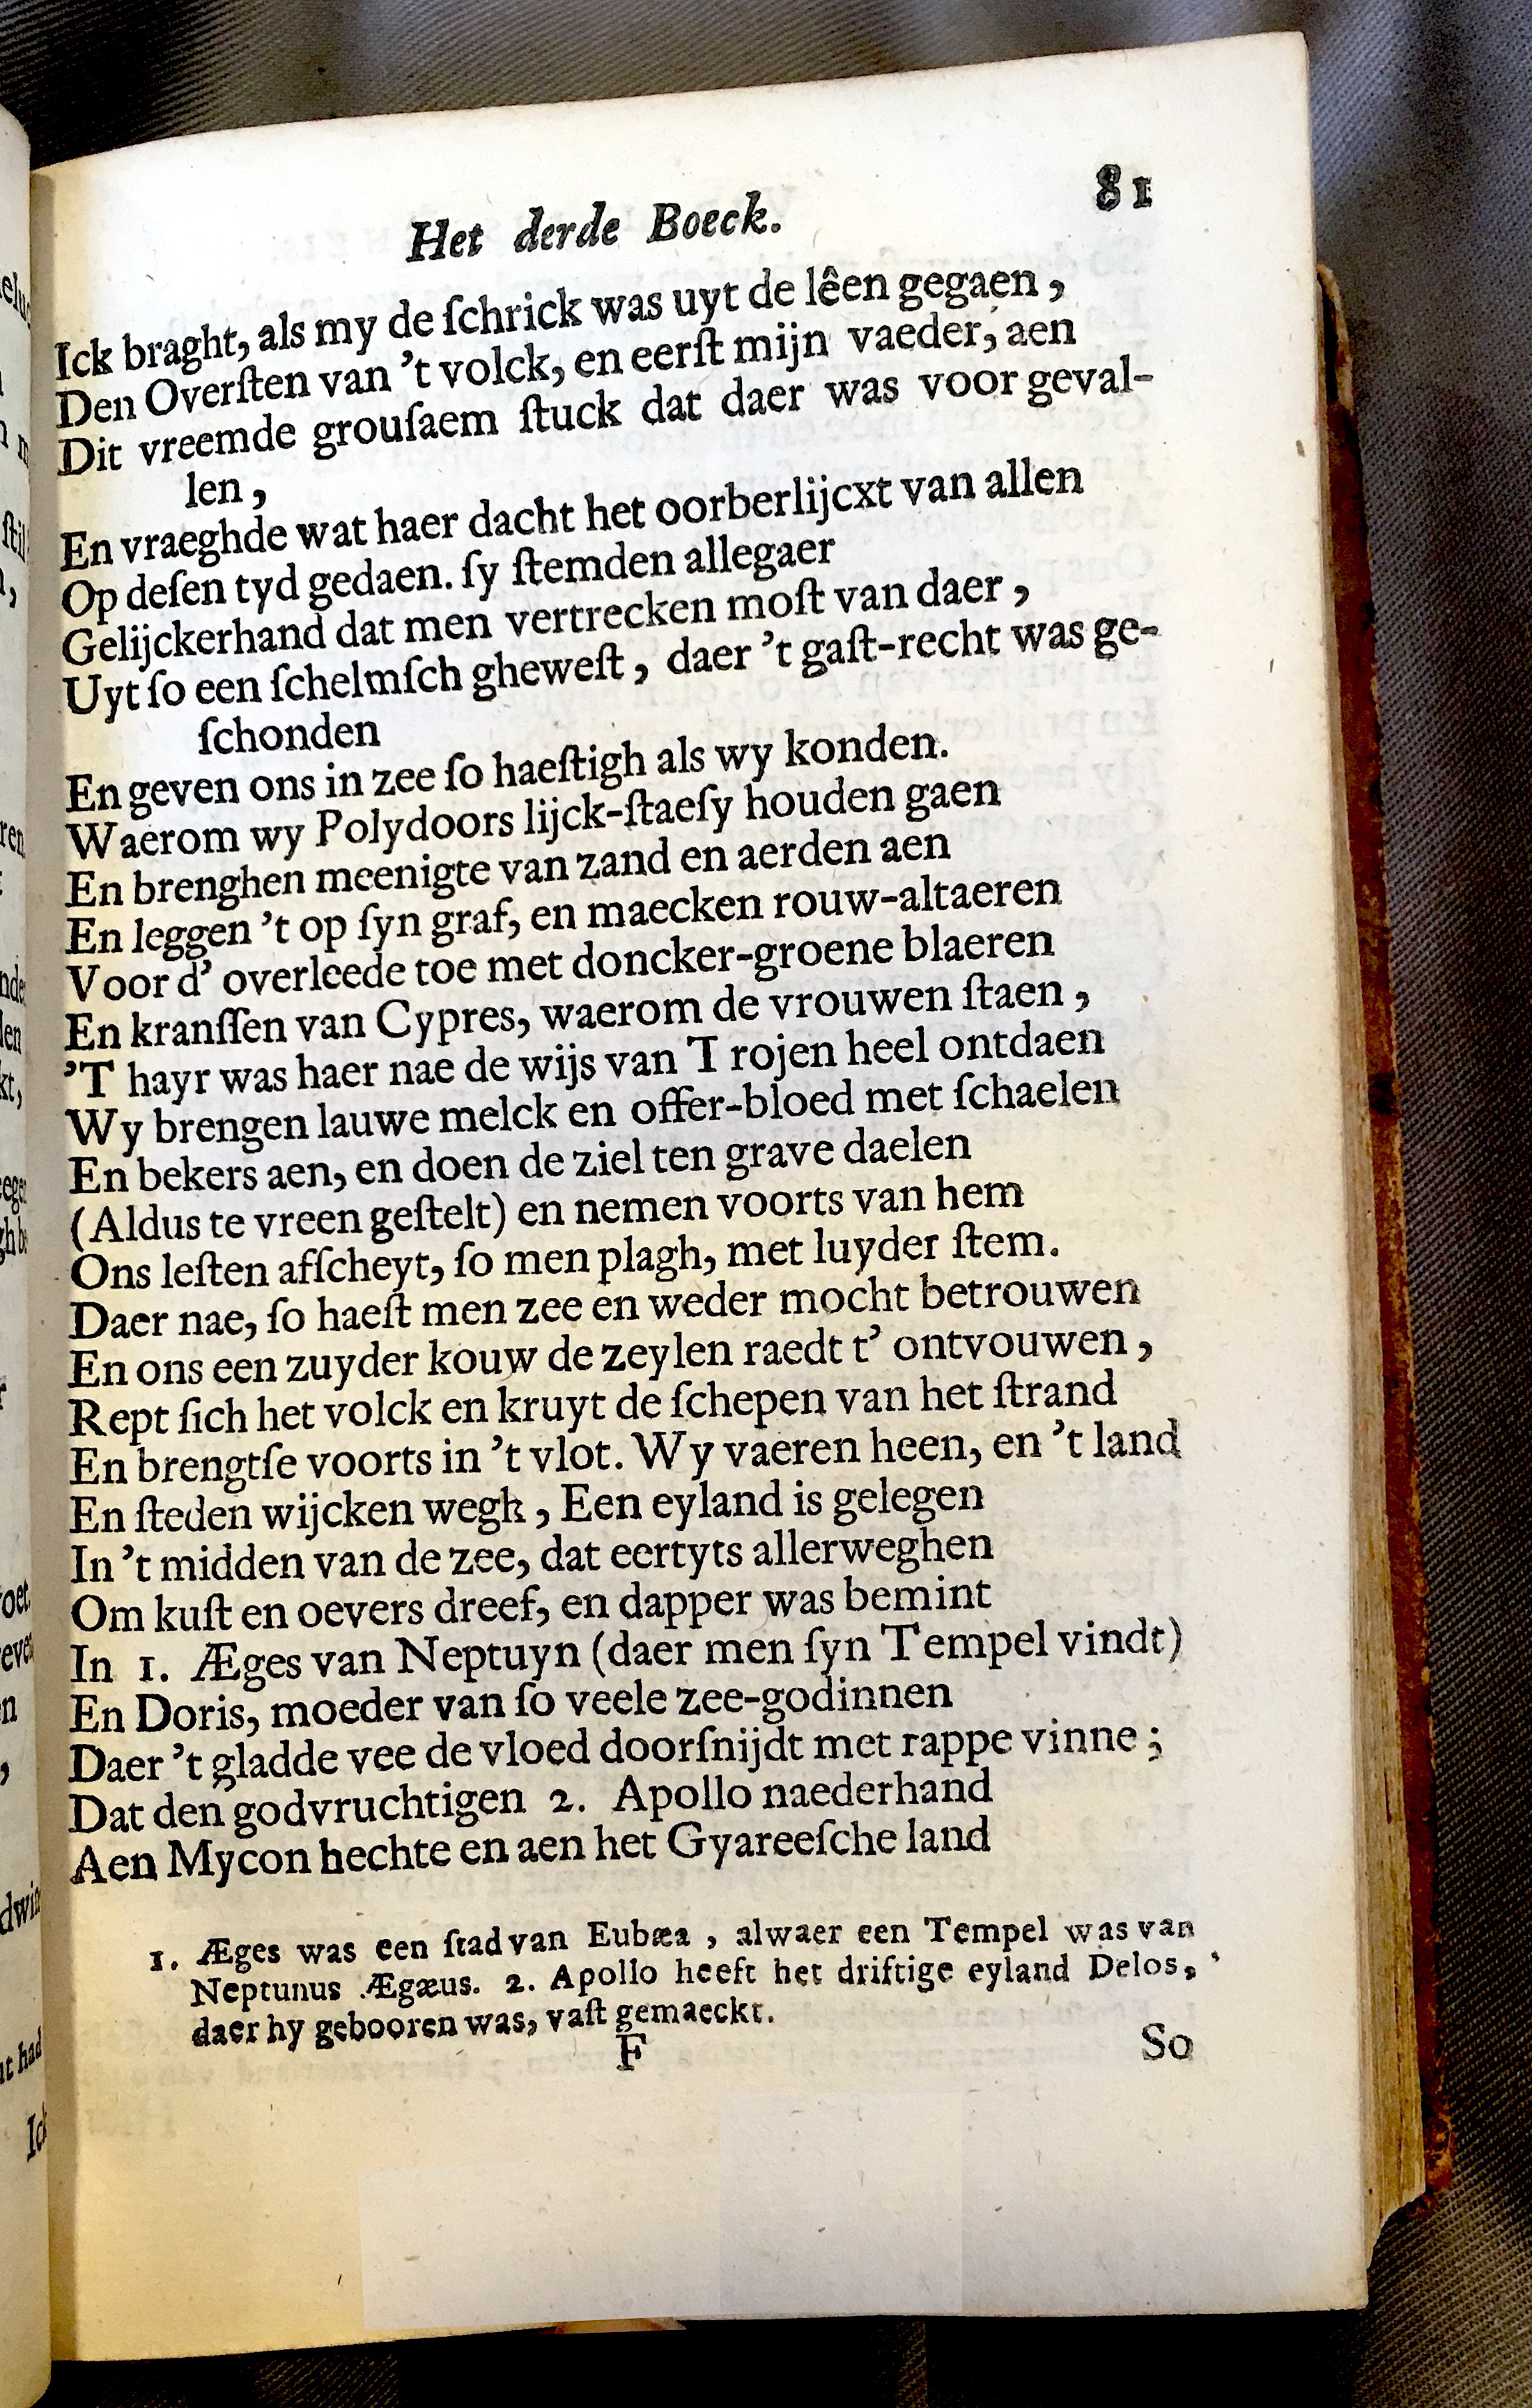 Het derde Boeck. 81
Ick braght, als my de ſchrick was uyt de lêen gegaen,
Den Overſten van 't volck, en eerſt mijn vaeder, aen
Dit vreemde grouſaem ſtuck dat daer was voor geval-
len,
En vraeghde wat haer dacht het oorberlijcxt van allen
Op deſen tyd gedaen. ſy ſtemden allegaer
Gelijckerhand dat men vertrecken moſt van daer,
Uyt ſo een ſchelmſch gheweſt, daer 't gaſt-recht was ge-
ſchonden
En geven ons in zee ſo haeſtigh als wy konden.
Waerom wy Polydoors lijck-ſtaeſy houden gaen
En brenghen meenigte van zand en aerden aen
En leggen 't op ſyn graf, en maecken rouw-altaeren
Voor d' overleede toe met doncker-groene blaeren
En kranſſen van Cypres, waerom de vrouwen ſtaen,
'T hayr was haer nae de wijs van Trojen heel ontdaen
Wy brengen lauwe melck en offer-bloed met ſchaelen
En bekers aen, en doen de ziel ten grave daelen
(Aldus te vreen geſtelt) en nemen voorts van hem
Ons leſten afſcheyt, ſo men plagh, met luyder ſtem.
Daer nae, ſo haeſt men zee en weder mocht betrouwen
En ons een zuyder kouw de zeylen raedt t' ontvouwen,
Rept ſich het volck en kruyt de ſchepen van het ſtrand
En brengtſe voorts in 't vlot. Wy vaeren heen, en 't land
En ſteden wijcken wegh, Een eyland is gelegen
In 't midden van de zee, dat eertyts allerweghen
Om kuſt en oevers dreef, en dapper was bemint
In 1. Æges van Neptuyn (daer men ſyn Tempel vindt)
En Doris, moeder van ſo veele zee-godinnen
Daer 't gladde vee de vloed doorſnijdt met rappe vinne;
Dat den godvruchtigen 2. Apollo naederhand
Aen Mycon hechte en aen het Gyareeſche land
1. Æges was een ſtad van Eubæa, alwaer een Tempel was van
Neptunus Ægæus. 2. Apollo heeft het driftige eyland Delos,
daer hy gebooren was, vaſt gemaeckt.
F So